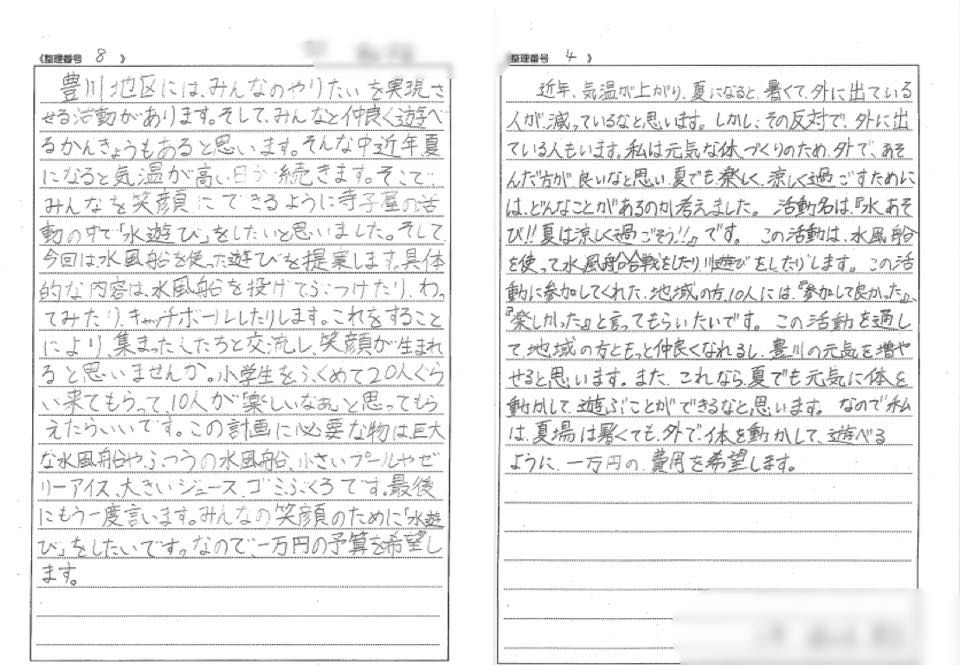 《整理番号 8 》
豊川地区には、みんなのやりたいを実現さ
せる活動があります。そして、みんなと仲良く遊べ
るかんきょうもあると思います。そんな中近年、夏
になると気温が高い日が続きます。そこで、
みんなを笑顔にできるように寺子屋の活
動の中で「水遊び」をしたいと思いました。そして、
今回は、水風船を使った遊びを提案します。具体
的な内容は、水風船を投げてぶつけたり、わっ
てみたり、キャッチボールしたりします。これをすること
により、集まった人たちと交流し、笑顔が生まれ
ると思いませんか。小学生をふくめて20人ぐら
い来てもらって、10人が「楽しいなぁ」と思ってもら
えたらいいです。この計画に必要な物は、巨大
な水風船や、ふつうの水風船、小さいプールやゼ
リーアイス、大きいジュース、ゴミぶくろです。最後
にもう一度言います。みんなの笑顔のために「水遊
び」をしたいです。なので、一万円の予算を希望し
ます。
整理番号 4 》
近年、気温が上がり、夏になると、暑くて、外に出ている
人が、減っているなと思います。しかし、その反対で、外に出
ている人もいます。私は元気な体づくりのため、外で、あそ
んだ方が良いなと思い、夏でも楽しく、涼しく過ごすために
は、どんなことがあるのか考えました。活動名は『水あそ
び!!夏は涼しく過ごそう!!』です。この活動は、水風船
を使って水風船合戦をしたり、川遊びをしたりします。この活
動に参加してくれた、地域の方、10人には、『参加して良かった』、
『楽しかった』と言ってもらいたいです。この活動を通し
て、地域の方ともっと仲良くなれるし、豊川の元気を増や
せると思います。また、これなら、夏でも元気に体を
動かして、遊ぶことができるなと思います。なので私
は、夏場は暑くても、外で、体を動かして、遊べる
ように、一万円の、費用を希望します。